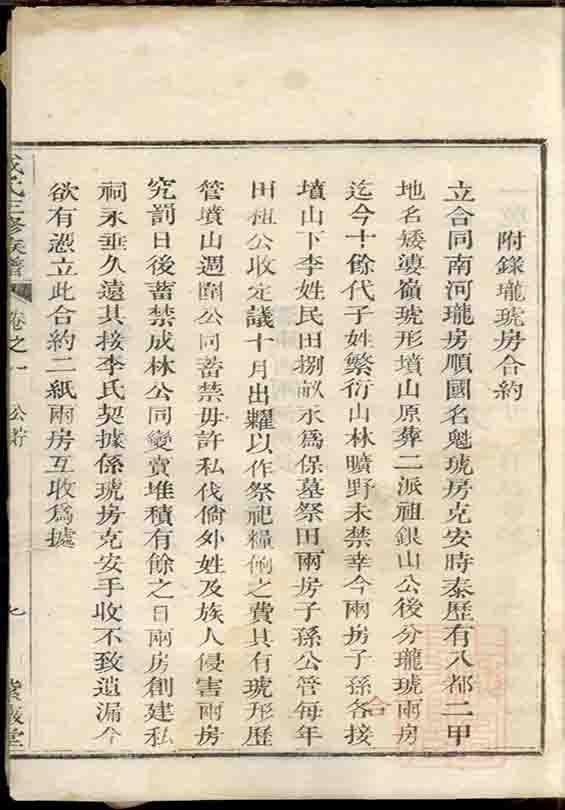 附錄瓏琥房合約
立合同南河瓏房順國名魁琥房克安時泰歷有八都二甲
地名矮凄嶺琥形墳山原葬二派祖銀山公後分瓏琥兩房
迄今十餘代子姓繁衍山林曠野未禁幸今兩房子孫各接
墳山下李姓民田捌畝永爲保墓祭田兩房子孫公管每年
田租公收定議十月出糶以作祭祀糧餉之費具有琥形歷
管墳山週圍公同蓄禁毋許私伐倘外姓及族人侵害兩房
究罰日後蓄禁成林公同變賣堆積有餘之日兩房創建私
祠永垂久遠其接李氏契據係琥房克安手收不致遺漏今
欲有憑立此合約二紙兩房互收爲據
氏三修族譜
卷之一
七